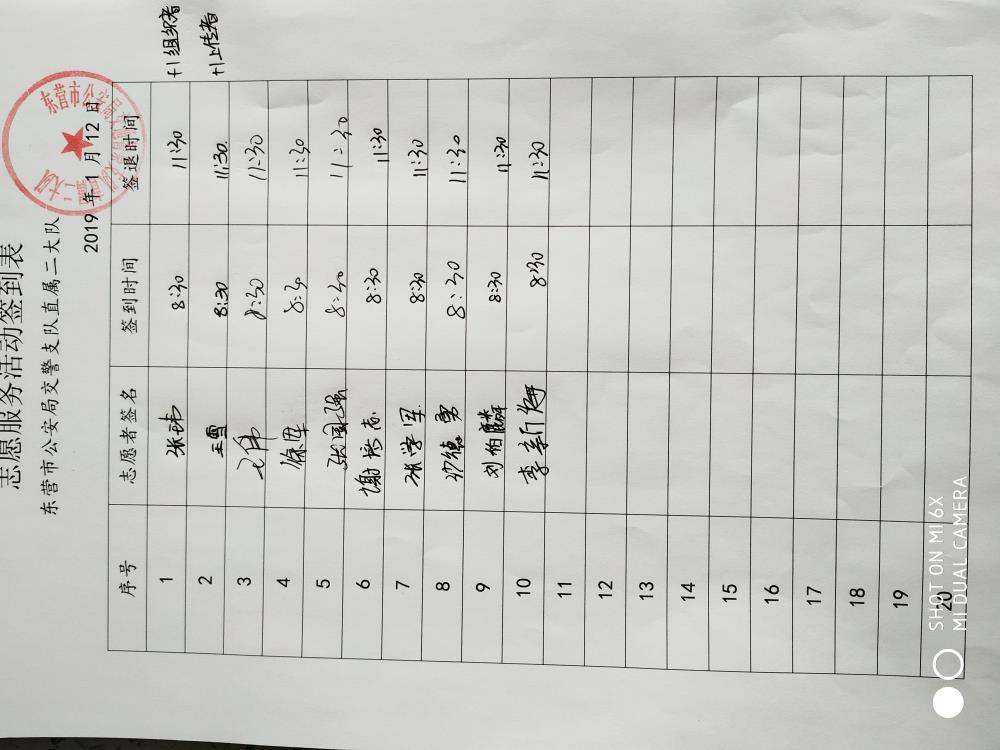 志愿服务活动签到表
东营市公安局交警支队直属二大队
2019 年 1 月 12 日
序号 志愿者签名 签到时间 签退时间
1 张玮 8:30 11:30 +1组织者
2 王雪 8:30 11:30 +1上传者
3 王伟 8:30 11:30
4 徐军 8:30 11:30
5 张国强 8:30 11:30
6 谢培志 8:30 11:30
7 张学军 8:30 11:30
8 8:30 11:30
9 刘伯麟 8:30 11:30
10 李新 8:30 11:30
11
12
13
14
15
16
17
18
19
20
SHOT ON MI 6X
MI DUAL CAMERA